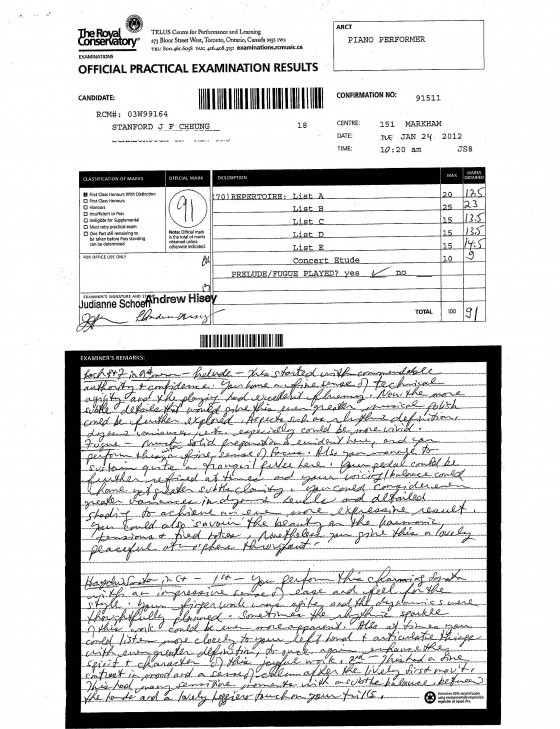 The Royal Conservatory®
EXAMINATIONS
TELUS Centre for Performance and Learning
273 Bloor Street West, Toronto, Ontario, Canada M5S 1W2
TEL: 800.461.6058 FAX: 416.408.3151 examinations.rcmusic.ca
ARCT
PIANO PERFORMER
OFFICIAL PRACTICAL EXAMINATION RESULTS
CANDIDATE:
CONFIRMATION NO: 91511
RCM#: 03W99164
STANFORD J F CHEUNG 18
CENTRE: 151 MARKHAM
DATE: TUE JAN 24 2012
TIME: 10:20 am JS8
CLASSIFICATION OF MARKS OFFICIAL MARK DESCRIPTION MAX MARKS OBTAINED
First Class Honours With Distinction
First Class Honours
Honours
Insufficient to Pass
Ineligible for Supplemental
Must retry practical exam
One Part still remaining to be taken before Pass standing can be determined
91
Note: Official mark is the total of marks obtained unless otherwise indicated.
(70) REPERTOIRE: List A 20 17.5
List B 25 23
List C 15 13.5
List D 15 13.5
List E 15 14.5
Concert Etude 10 9
PRELUDE/FUGUE PLAYED? yes ✓ no
FOR OFFICE USE ONLY
EXAMINER'S SIGNATURE AND
Judianne Schoen Andrew Hisey
TOTAL 100 91
EXAMINER'S REMARKS:
Prelude - This started with commendable
authority + confidence. You have a fine sense of technical
agility and the playing had excellent fluency. Now the more
subtle details that would give this even greater musical polish
could be further explored. Aspects such as rhythmic definition,
dynamic especially could be more vivid.
Fugue - solid preparation is evident here, and you
perform this fine sense of focus. Also you manage to
sustain quite a tranquil here. Your pedal could be
further refined at times and your voicing/balance could
have yet greater clarity. You could consider even
greater in dynamic levels and detailed
shading to achieve an even more expressive result.
You could also savour the beauty in the harmonic
tensions + tied notes. Nonetheless you give this a lovely
peaceful atmosphere throughout.
Haydn Sonata in C+ - 1st - You perform this charming Sonata
with an impressive sense of ease and feel for the
style. Your fingerwork was agile, and the dynamics were
thoughtfully planned. Sometimes the rhythmic sparkle
of this work could be even more apparent. Also at times you
could listen more closely to your left hand + articulate things
with even greater definition, to once again enhance the
spirit + character of this joyful work. 2nd - This had a fine
contrast in mood and a sense of calm after the lively first mov't.
This had many sensitive moments with a subtle balance between
the hands and a lovely touch on your trills.